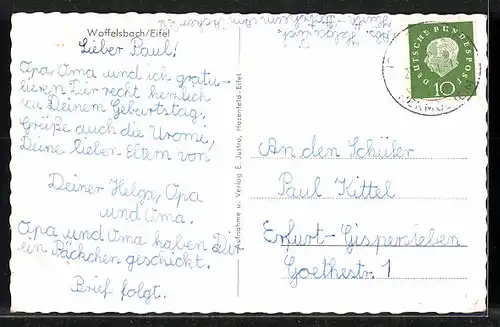 Woffelsbach/Eifel
Lieber Paul!
Opa, Oma und ich gratu-
lieren Dir recht herzlich
zu Deinem Geburtstag,
Grüße auch die Uromi,
Deine lieben Eltern von
Deiner Helga, Opa
und Oma.
Opa und Oma haben Dir
ein Päckchen geschickt.
Brief folgt.
Abs. Helga
Aufnahme u. Verlag E. Justra, Hasenfeld-Eifel
DEUTSCHE BUNDESPOST
10
An den Schüler
Paul Kittel
Erfurt-Gispersleben
Goethestr. 1